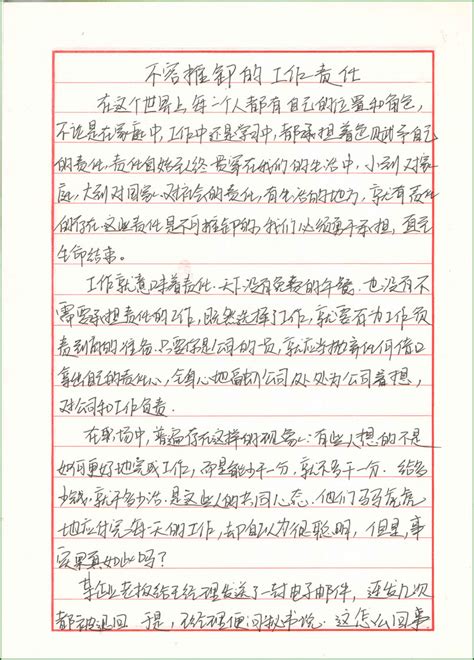 不容推卸的工作责任
在这个世界上每一个人都有自己的位置和角色,
不论是在家庭中,工作中还是学习中,都承担着各自
的责任,责任自始至终贯穿在我们的生活中,小到对家
庭,大到对国家、对社会的责任,有生活的地方,就有责任
的存在,这些责任是不可推卸的,我们必须勇于承担,直至
生命结束。
工作就意味着责任,天下没有免费的午餐,也没有不
需要承担责任的工作,既然选择了工作,就要有为工作负
责到底的准备,只要你是公司的一员,就应当抛弃任何借口
拿出自己的责任心,全身心地 公司,处处为公司着想,
对公司和工作负责.
在职场中,普遍存在这样的现象:有些人想的不是
如何更好地完成工作,而是能少干一分,就不多干一分.给多
少钱,就干多少活.是这些人的共同心态.他们马马虎虎
地应付完每天的工作,却自以为很聪明,但是,事
实果真如此吗?
某企业老板给王经理发送了一封电子邮件,连发几次
都被退回.于是,王经理便问秘书说.这怎么回事